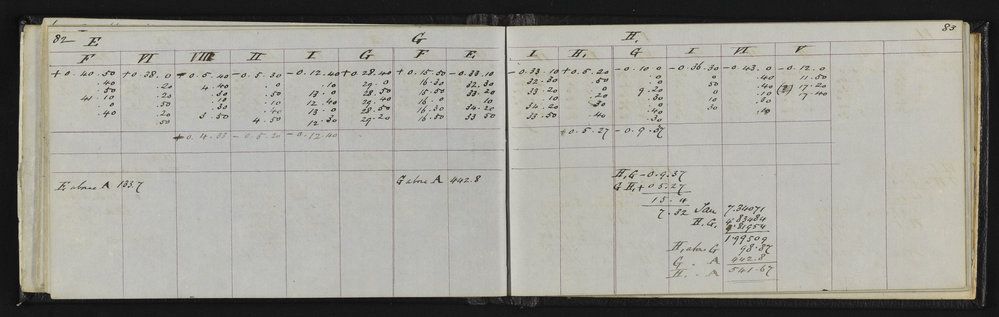 82 E G
F VI VIII II I G F E
+0.40.50 +0.38.0 +0.5.40 -0.5.30 -0.12.40 +0.28.40 +0.15.50 -0.33.10
.40 .20 4.40 .0 .10 29.0 16.30 32.30
.50 .20 .50 13.0 28.50 15.50 33.20
41.10 .20 .10 .10 12.40 29.40 16.0 .10
.0 .50 .30 .40 13.0 28.50 16.30 34.20
.40 .20 3.50 4.50 12.30 29.20 16.50 33.50
.50
+0.4.33 -0.5.20 -0.12.40
E above A 133.7 G above A 442.8
83
H,
I H, G I VI V
-0.33.10 +0.5.20 -0.10.0 -0.36.30 -0.43.0 -0.12.0
32.30 .50 .0 0 .40 11.50
33.20 .0 9.20 0 .40 17.20
.10 .20 .30 .10 7.40
34.20 .30 .10 30 .30
33.50 .40 .40
.30
+0.5.27 -0.9.37
H,G -0.9.37
GH, +0.5.27
15.4
7.32 Tan 7.34071
H,G, 4.83484
9.81954
1.99509
H, above G 98.87
G . A 442.8
H, . A 541.67